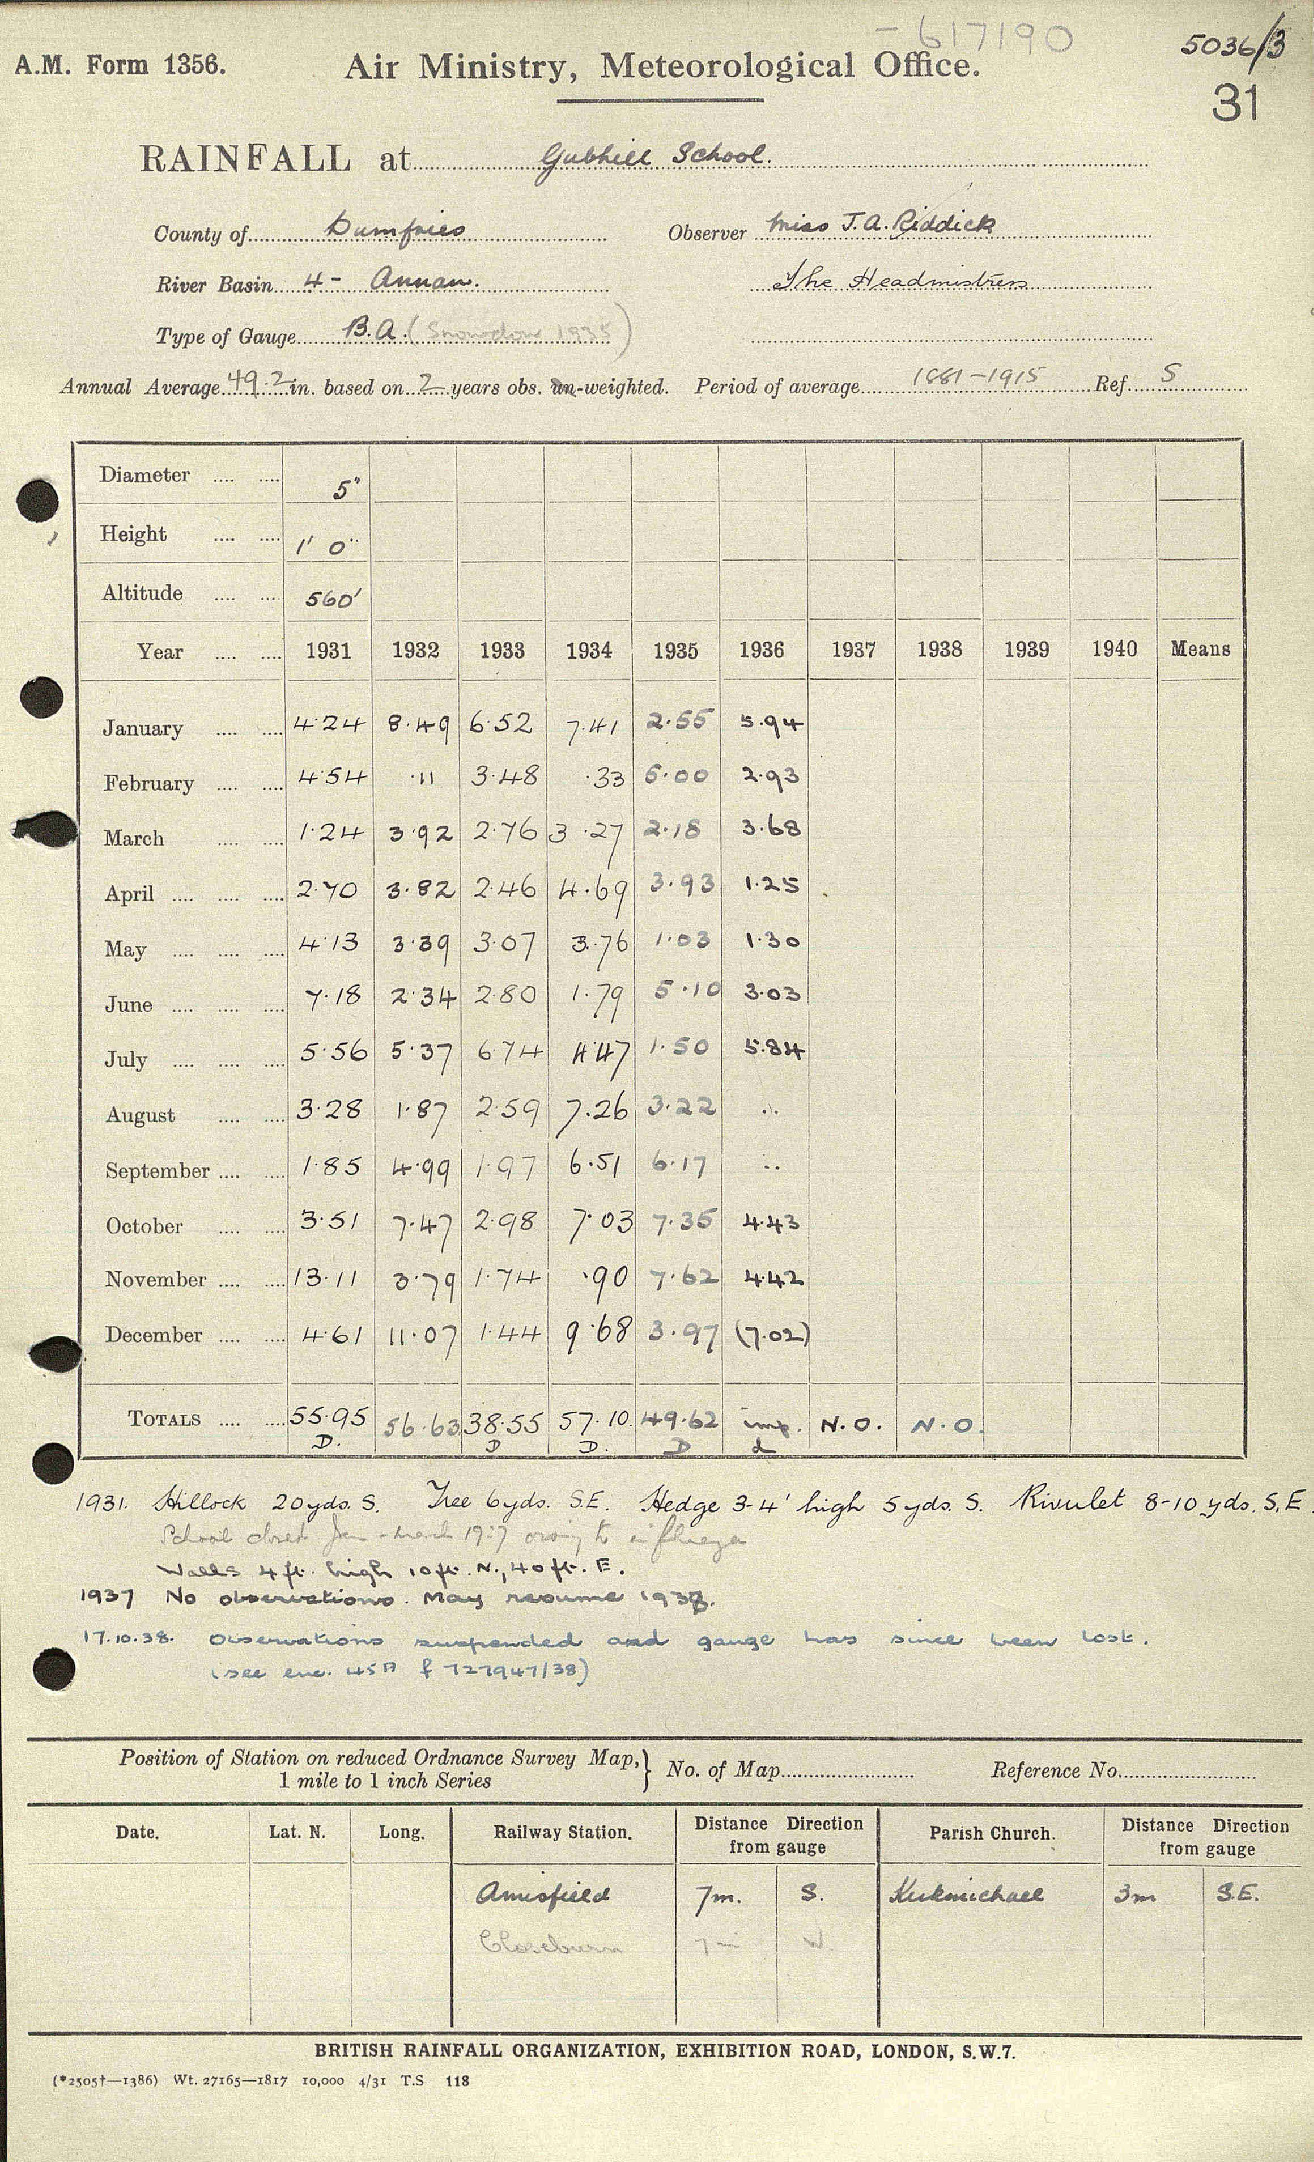 - 617190
5036/3
A.M. Form 1356.
Air Ministry, Meteorological Office.
31
RAINFALL at Gubhill School.
County of Dumfries Observer Miss J.A. Riddick
River Basin 4 - Annan. The Headmistress
Type of Gauge B.A. (Snowdon 1935)
Annual Average 49.2 in. based on 2 years obs. un-weighted. Period of average 1881-1915 Ref. S
Diameter .... .... 5"
Height .... .... 1' 0"
Altitude .... .... 560'
Year .... .... 1931 1932 1933 1934 1935 1936 1937 1938 1939 1940 Means
January .... .... 4.24 8.49 6.52 7.41 2.55 5.94
February .... .... 4.54 .11 3.48 .33 5.00 2.93
March .... .... 1.24 3.92 2.76 3.27 2.18 3.68
April .... .... .... 2.70 3.82 2.46 4.69 3.93 1.25
May .... .... .... 4.13 3.39 3.07 3.76 1.03 1.30
June .... .... .... 7.18 2.34 2.80 1.79 5.10 3.03
July .... .... .... 5.56 5.37 6.74 4.47 1.50 5.84
August .... .... 3.28 1.87 2.59 7.26 3.22 ..
September .... .... 1.85 4.99 1.97 6.51 6.17 ..
October .... .... 3.51 7.47 2.98 7.03 7.35 4.43
November .... .... 13.11 3.79 1.74 .90 7.62 4.42
December .... .... 4.61 11.07 1.44 9.68 3.97 (7.02)
TOTALS .... .... 55.95 56.63 38.55 57.10 49.62 imp. N.O. N.O.
D. D D. D d
1931. Hillock 20 yds. S. Tree 6 yds. S.E. Hedge 3-4' high 5 yds. S. Rivulet 8-10 yds. S.E.
School closed Jan - March 1937 owing to influenza
Walls 4 ft. high 10 ft. N., 40 ft. E.
1937 No observations. May resume 1938.
17.10.38. Observations suspended and gauge has since been lost.
(see enc. 45A f 727947/38)
Position of Station on reduced Ordnance Survey Map, } No. of Map Reference No.
1 mile to 1 inch Series
Date. Lat. N. Long. Railway Station. Distance Direction from gauge Parish Church. Distance Direction from gauge
Amisfield 7m. S. Kirkmichael 3m S.E.
Closeburn 7m W.
BRITISH RAINFALL ORGANIZATION, EXHIBITION ROAD, LONDON, S.W.7.
(*2505†—1386) Wt. 27165—1817 10,000 4/31 T.S 118